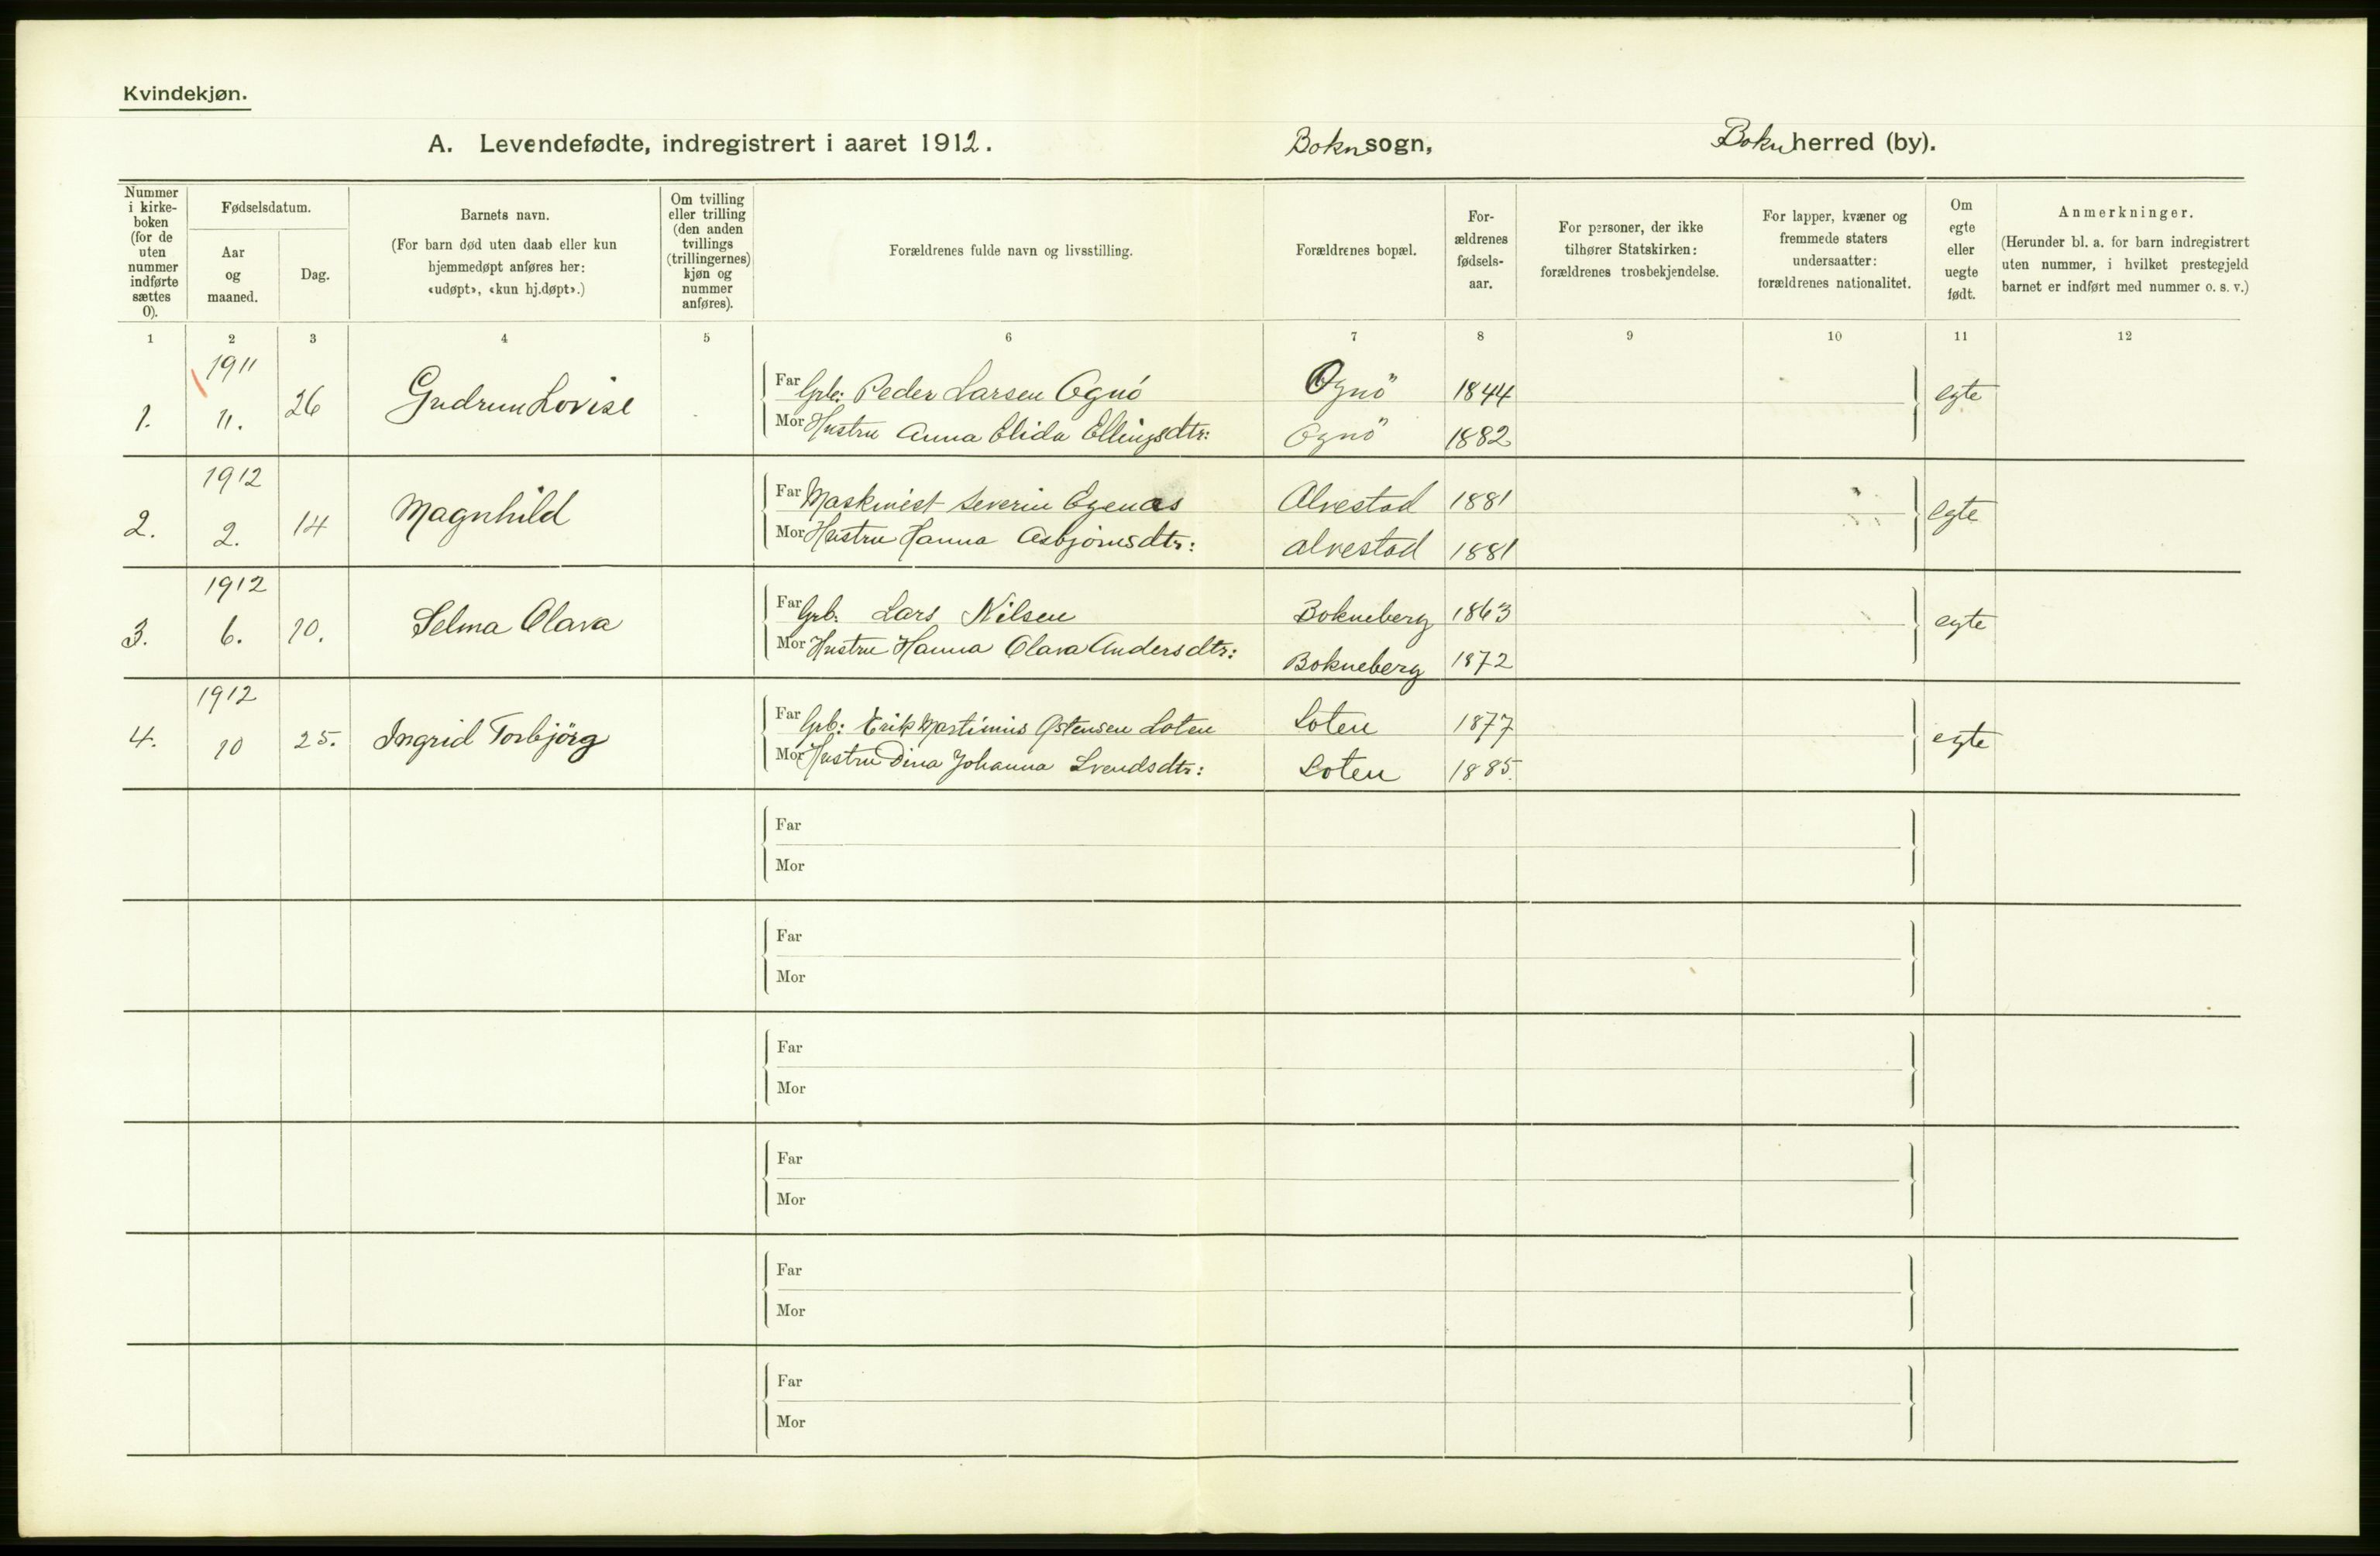 Kvindekjøn.
A. Levendefødte, indregistrert i aaret 1912. Bokn sogn, Bokn herred (by).
Nummer i kirke-boken (for de uten nummer indførte sættes 0).
Fødselsdatum.
Aar og maaned.
Dag.
Barnets navn.
(For barn død uten daab eller kun hjemmedøpt anføres her: «udøpt», «kun hj.døpt».)
Om tvilling eller trilling (den anden tvillings (trillingernes) kjøn og nummer anføres).
Forældrenes fulde navn og livsstilling.
Forældrenes bopæl.
For-ældrenes fødsels-aar.
For personer, der ikke tilhører Statskirken: forældrenes trosbekjendelse.
For lapper, kvæner og fremmede staters undersaatter: forældrenes nationalitet.
Om egte eller uegte født.
Anmerkninger.
(Herunder bl. a. for barn indregistrert uten nummer, i hvilket prestegjeld barnet er indført med nummer o. s. v.)
1 2 3 4 5 6 7 8 9 10 11 12
1911
1. 11. 26 Gudrun Lovise Far Grb: Peder Larsen Ognö Ognö 1844 egte
Mor Hustru Anna Elida Ellingsdtr: Ognö 1882
1912
2. 2. 14 Magnhild Far Maskinist Severin Egenæs Alvestad 1881 egte
Mor Hustru Hanna Asbjørnsdtr: Alvestad 1881
1912
3. 6. 10. Selma Olava Far Grb. Lars Nilsen Bokneberg 1863 egte
Mor Hustru Hanna Olava Andersdtr: Bokneberg 1872
1912
4. 10 25. Ingrid Torbjörg Far Grb: Erik Martinius Østensen Loten Loten 1877 egte
Mor Hustru Dina Johanna Svendsdtr: Loten 1885.
Far
Mor
Far
Mor
Far
Mor
Far
Mor
Far
Mor
Far
Mor